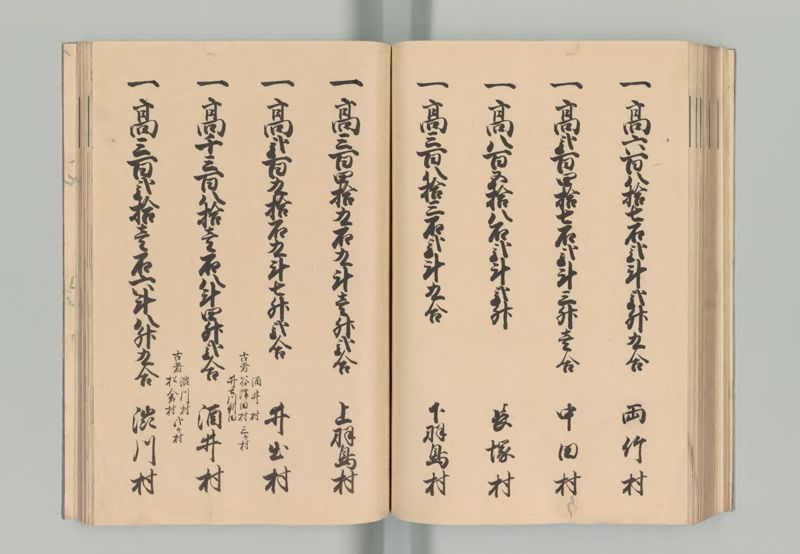 一高六百八拾七石弐斗弐升九合 両竹村
一高弐百四拾七石弐斗三升壱合 中田村
一高八百五拾八石弐斗弐升 長塚村
一高三百八拾三石弐斗九合 下羽鳥村
一高三百四拾九石九斗壱升弐合 上羽鳥村
一高弐百九拾石九斗七升弐合 井出村
古者 酒井村
谷津田村 三ヶ村
一高千三百八拾壱石八斗四升弐合 酒井村
古者 渋川村
松倉村 弐ヶ村
一高三百弐拾壱石六斗八升九合 渋川村